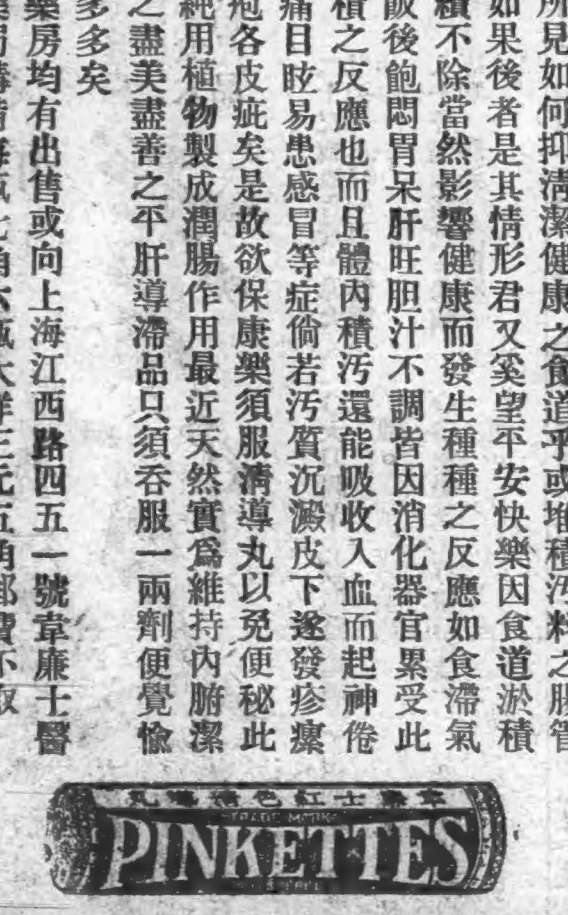 所見如何抑清潔健康之食道乎或堆積污料之腸管
如果後者是其情形君又奚望平安快樂因食道淤積
積不除當然影響健康而發生種種之反應如食滯氣
飯後飽悶胃呆肝旺胆汁不調皆因消化器官累受此
積之反應也而且體內積污還能吸收入血而起神倦
痛目眩易患感冒等症倘若污質沉澱皮下遂發疹瘰
疱各皮疵矣是故欲保康樂須服清導丸以免便秘此
純用植物製成潤腸作用最近天然實爲維持內腑潔
之盡美盡善之平肝導滯品只須呑服一兩劑便覺愉
多多矣
藥房均有出售或向上海江西路四五一號韋廉士醫
每瓶七角六瓶大洋三元五角郵費不取
韋廉士紅色清導丸
TRADE MARK
PINKETTES